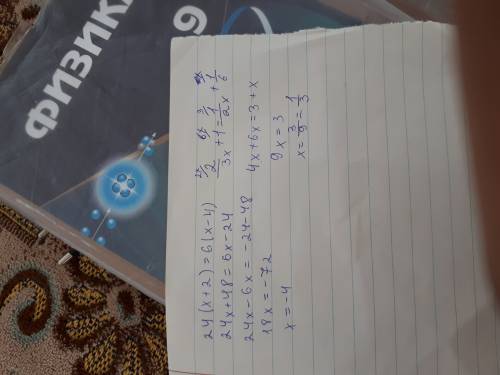 ФИЗИКА
9
24(x+2)=6(x-4)
24x+48=6x-24
24x-6x=-24-48
18x=-72
x=-4
2/3x+1=1/2x+1/6
4x+6x=3+x
9x=3
x=3/9=1/3